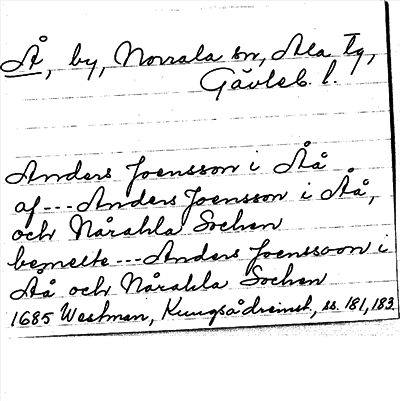 Å, by, Norrala sn, Ala tg,
Gävleb. l.
Anders Joensson i Åå
af --- Anders Joensson i Åå,
och Nårahla Sochen
bemelte --- Anders Joenssoon i
Åå och Nårahla Sochen
1685 Westman, Kungsådreinst, ss. 181, 183.